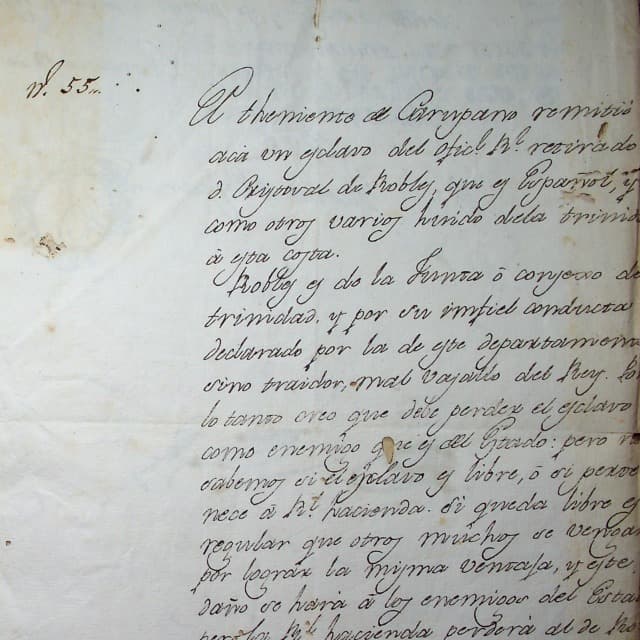 N. 55..
El theniente de Carupano remitió
acá un esclavo del ofic.l R.l retirado
d. Cristoval de Robles, que es Español, y
como otros varios huido dela trinid
à esta costa.
Robles es de la Junta ó consexo de
trinidad. y por su infiel conducta
declarado por la de este departamen
sino traidor, mal vasallo del Rey. Por
lo tanto creo que debe perder el esclavo
como enemigo que es del Estado: pero
sabemos si el esclavo es libre, ó si perte
nece à R.l hacienda. Si queda libre es
regular que otros muchos se vengan
por lograr la misma ventaja, y este
daño se hará à los enemigos del Esta
pero la R.l hacienda perderá al de Ro